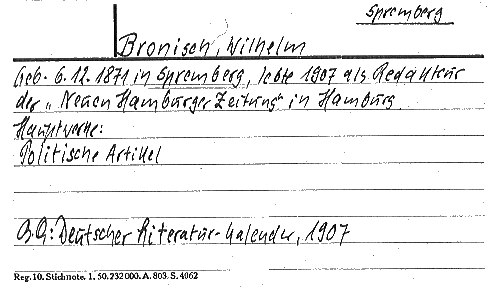 Spremberg
Bronisch, Wilhelm
Geb. 6.12.1871 in Spremberg, lebte 1907 als Redakteur
der „Neuen Hamburger Zeitung" in Hamburg
Hauptwerke:
Politische Artikel
B.Q.: Deutscher Literatur-Kalender, 1907
Reg. 10. Stichnote. 1. 50. 232 000. A. 803. S. 4062